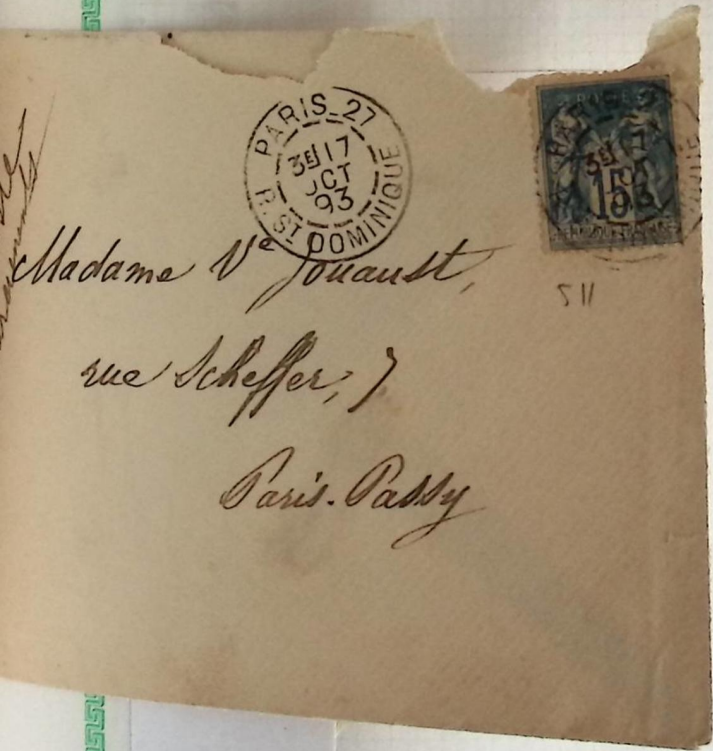 PARIS_27
3E 17
OCT
93
R. ST DOMINIQUE
15
Madame Ve Jouaust,
rue Scheffer, 7
Paris-Passy